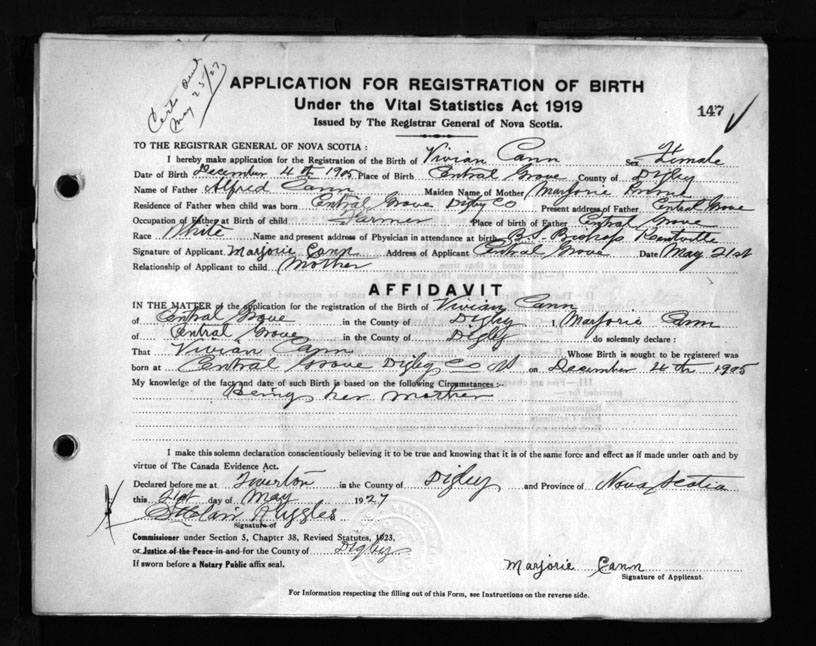 Certs Sent
May 25/27
APPLICATION FOR REGISTRATION OF BIRTH
Under the Vital Statistics Act 1919
Issued by The Registrar General of Nova Scotia.
147
TO THE REGISTRAR GENERAL OF NOVA SCOTIA :
I hereby make application for the Registration of the Birth of Vivian Cann Sex Female
Date of Birth December 4th 1905 Place of Birth Central Grove County of Digby
Name of Father Alfred Cann Maiden Name of Mother Marjorie
Residence of Father when child was born Central Grove Digby Co Present address of Father Central Grove
Occupation of Father at Birth of child Farmer Place of birth of Father Central Grove
Race White Name and present address of Physician in attendance at birth Bishop Kentville
Signature of Applicant Marjorie Cann Address of Applicant Central Grove Date May 21st
Relationship of Applicant to child Mother
AFFIDAVIT
IN THE MATTER of the application for the registration of the Birth of Vivian Cann
of Central Grove in the County of Digby I, Marjorie Cann
of Central Grove in the County of Digby do solemnly declare :
That Vivian Cann Whose Birth is sought to be registered was
born at Central Grove Digby Co NS on December 4th 1905
My knowledge of the fact and date of such Birth is based on the following Circumstances :-
Being her mother
I make this solemn declaration conscientiously believing it to be true and knowing that it is of the same force and effect as if made under oath and by
virtue of The Canada Evidence Act.
Declared before me at Tiverton in the County of Digby and Province of Nova Scotia
this 21st day of May 1927
Ruggles
Signature of
Commissioner under Section 5, Chapter 38, Revised Statutes, 1923,
or Justice of the Peace in and for the County of Digby
If sworn before a Notary Public affix seal.
Marjorie Cann
Signature of Applicant.
For Information respecting the filling out of this Form, see Instructions on the reverse side.